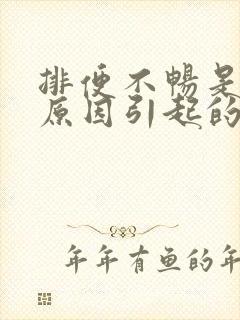 排便不暢是
原因引起的
年年有鱼的年